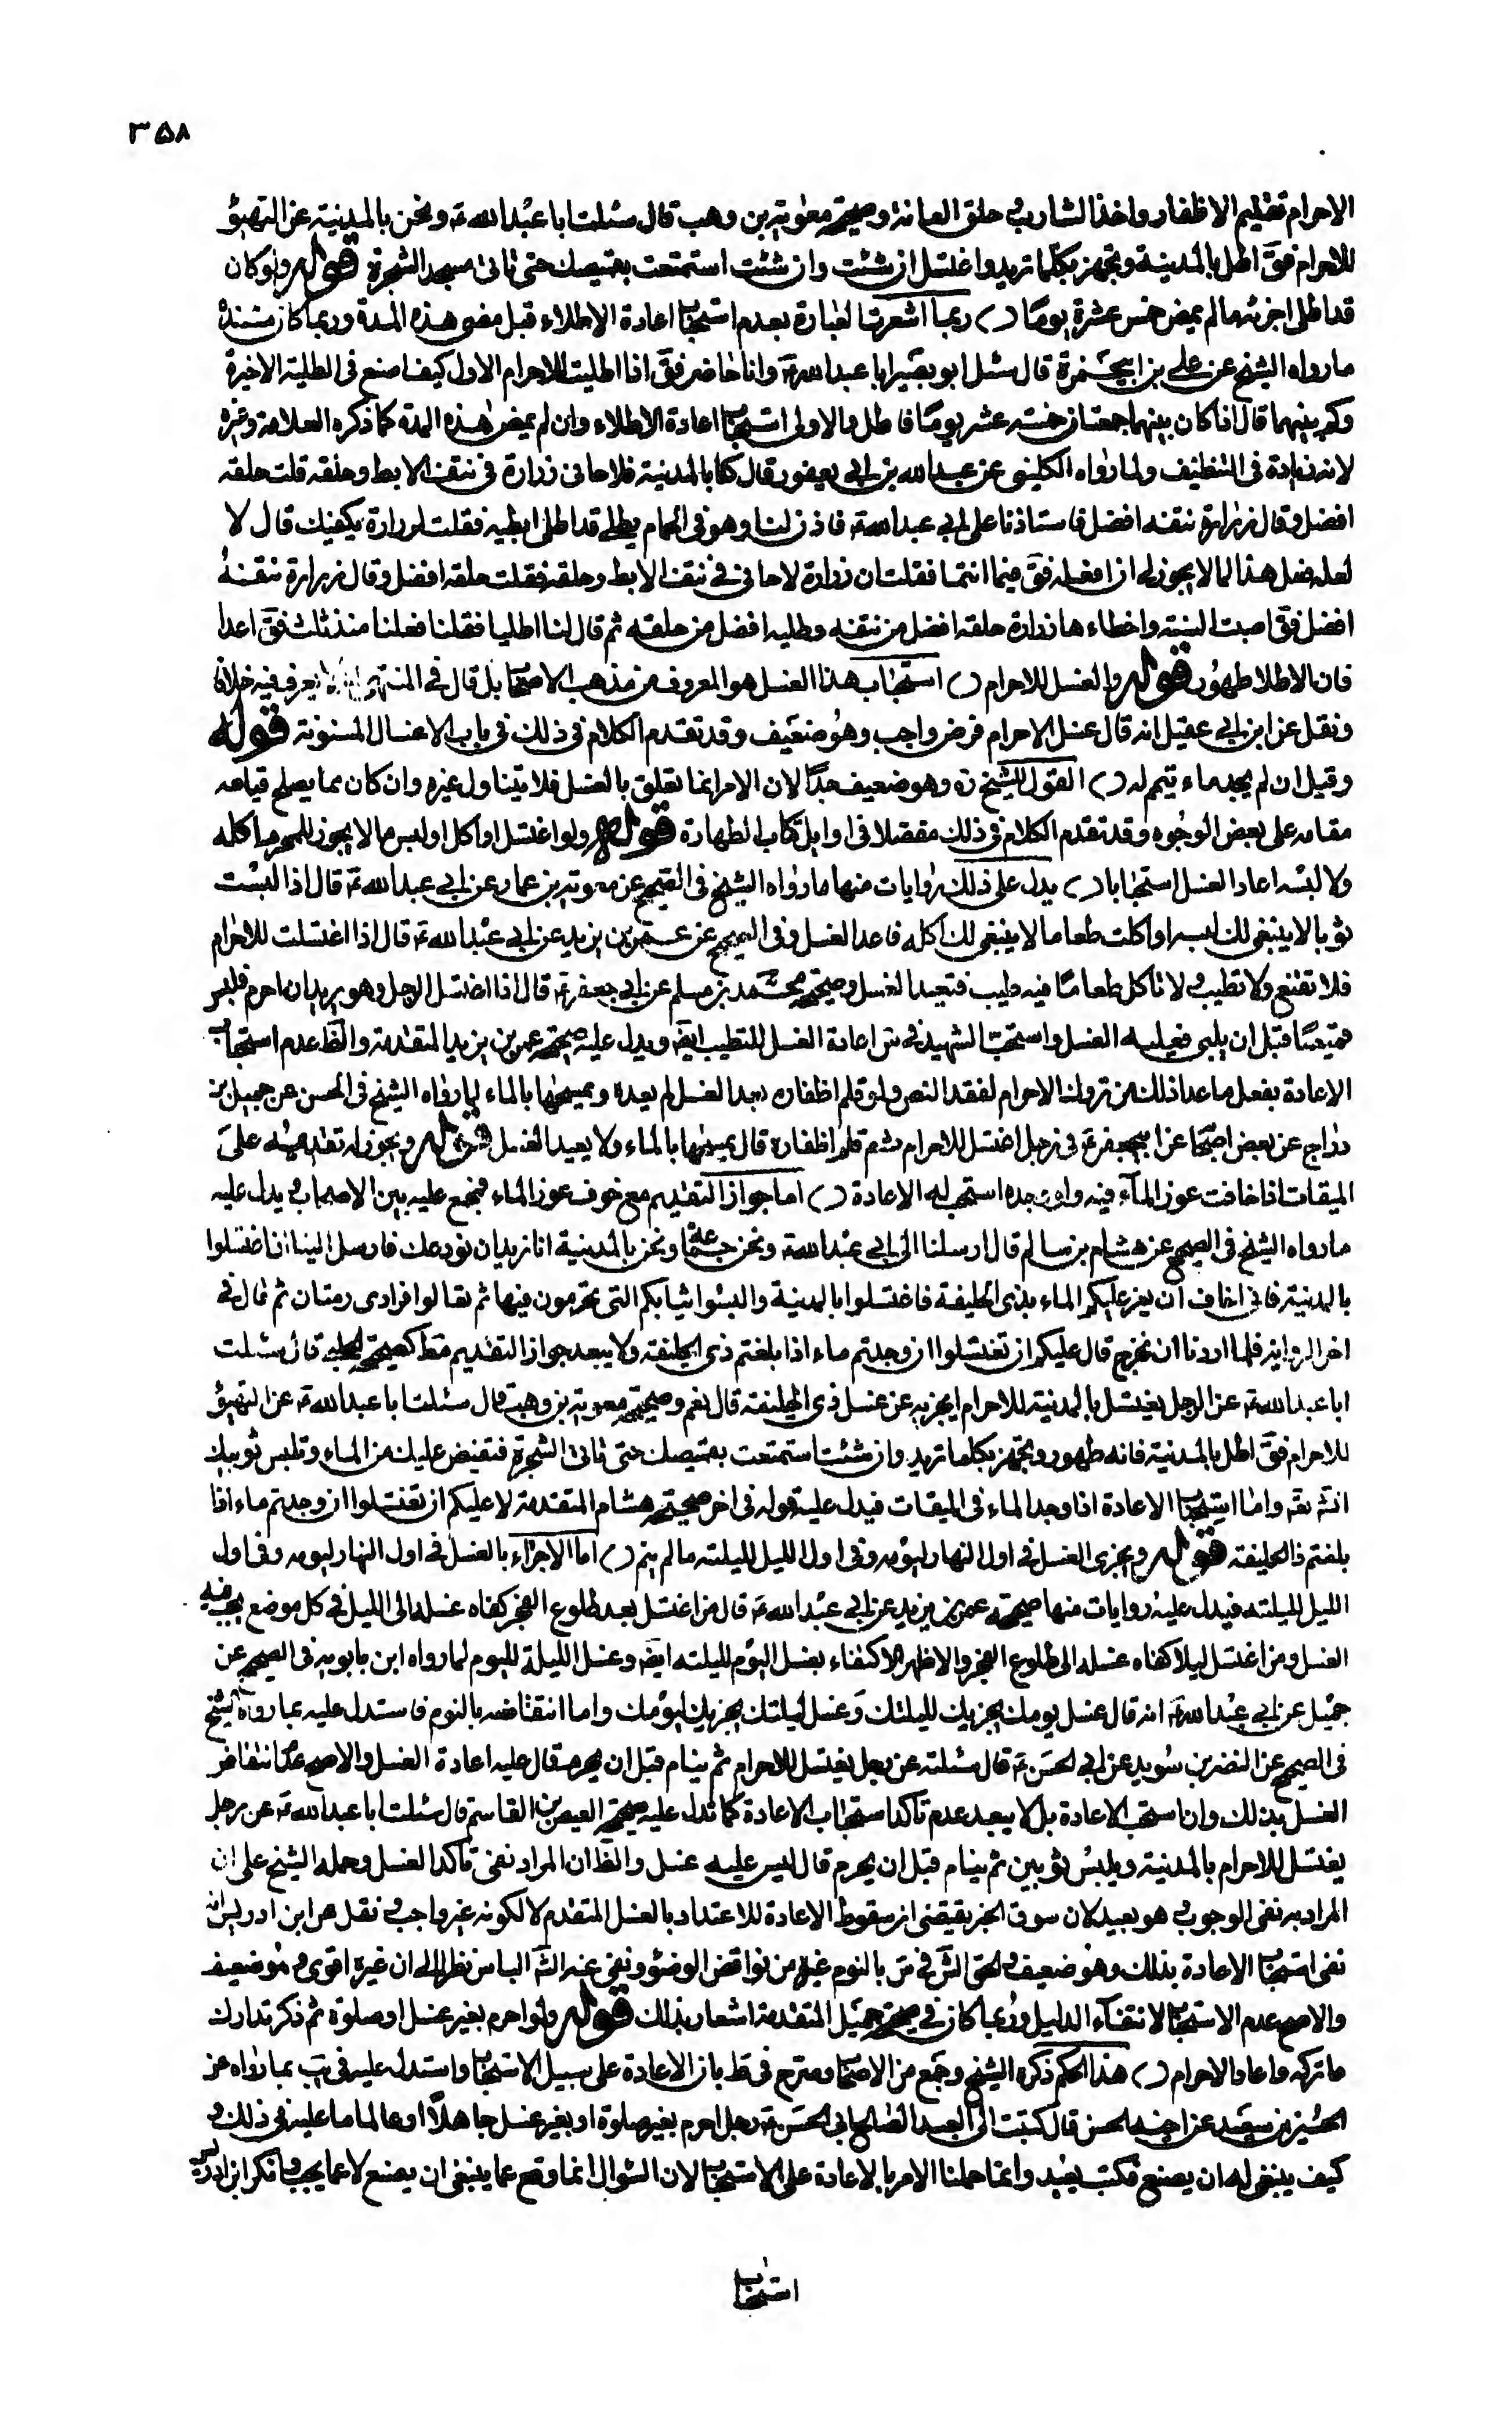 ٣٥٨
الاحرام تقليم الاظفار واخذ الشارب و حلق العانة وصحيحة معوية بن وهب قال سئلت ابا عبد الله ع ونحن بالمدينة عن التهيؤ
للاحرام فق اطل بالمدينة وتجهز بكلما تريد واغتسل ان شئت وان شئت استمتعت بقميصك حتى تاتى مسجد الشجرة قوله ولو كان
قد اطلى اجزئه ما لم يمض خمس عشرة يوما ربما اشعرت العبارة بعدم استحباب اعادة الاطلاء قبل مضى هذه المدة وربما كان مستنده
ما رواه الشيخ عن على بن ابى حمزة قال سئل ابو بصير ابا عبد الله ع وانا حاضر فق اذا اطليت للاحرام الاول كيف اصنع فى الطلية الاخيرة
وكم بينهما قال اذا كان بينهما جمعتان خمسة عشر يوما فاطل والاولى استحباب اعادة الاطلاء وان لم يمض هذه المدة كما ذكره العلامة وغيره
لانه زيادة فى التنظيف ولما رواه الكلينى عن عبد الله بن ابى يعفور قال كنا بالمدينة فلاحانى زرارة فى نتف الابط وحلقه قلت حلقه
افضل وقال زرارة نتفه افضل فاستاذنا على ابى عبد الله ع فاذن لنا وهو فى الحمام يطلى قد اطلى ابطيه فقلت لزرارة يكفيك قال لا
لعله فعل هذا لما لا يجوز لى ان افعله فق فيما انتما فقلت ان زرارة لاحانى فى نتف الابط وحلقه فقلت حلقه افضل وقال زرارة نتفه
افضل فق اصبت السنة واخطاءها زرارة حلقه افضل من نتفه وطليه افضل من حلقه ثم قال لنا اطليا فقلنا فعلنا منذ ثلث فق اعدا
فان الاطلا طهور قوله والغسل للاحرام استحباب هذا الغسل هو المعروف من مذهب الاصحاب بل قال فى المنتهى يعرف فيه خلافا
ونقل عن ابن ابى عقيل انه قال غسل الاحرام فرض واجب وهو ضعيف وقد تقدم الكلام فى ذلك فى باب الاغسال المسنونة قوله
وقيل ان لم يجد ماء تيمم له القول للشيخ ره وهو ضعيف جدا لان الامر انما تعلق بالغسل فلا يتناول غيره وان كان مما يصلح قيامه
مقامه على بعض الوجوه وقد تقدم الكلام فى ذلك مفصلا فى اوايل كتاب الطهارة قوله ولو اغتسل او اكل او لبس ما لا يجوز للمحرم اكله
ولا لبسه اعاد الغسل استحبابا يدل على ذلك روايات منها ما رواه الشيخ فى الصحيح عن معوية بن عمار عن ابى عبد الله ع قال اذا لبست
ثوبا لا ينبغى لك لبسه او اكلت طعاما لا ينبغى لك اكله فاعد الغسل وفى الصحيح عن عمر بن يزيد عن ابى عبد الله ع قال اذا اغتسلت للاحرام
فلا تقنع ولا تطيب ولا تاكل طعاما فيه طيب فتعيد الغسل وصحيحة محمد بن مسلم عن ابى جعفر ع قال اذا اغتسل الرجل وهو يريد ان احرم فلبس
قميصا قبل ان يلبى فعليه الغسل واستحب الشهيد فى س اعادة الغسل للتطيب ايضا ويدل عليه صحيحة عمر بن يزيد المتقدمة والظ عدم استحباب
الاعادة بفعل ما عدا ذلك من تروك الاحرام لفقد النص ولو قلم اظفاره بعد الغسل لم يعده ويمسحها بالماء لما رواه الشيخ فى الحسن عن جميل بن
دراج عن بعض اصحابنا عن ابى جعفر ع فى رجل اغتسل للاحرام ثم قلم اظفاره قال يمسحها بالماء ولا يعيد الغسل قوله ويجوز له تقديمه على
الميقات اذا خافت عوز الماء فيه ولو وجده استحب له الاعادة اما جواز التقديم مع خوف عوز الماء فمجمع عليه بين الاصحاب و يدل عليه
ما رواه الشيخ فى الصحيح عن هشام بن سالم قال ارسلنا الى ابى عبد الله ع ونحن جماعة ونحن بالمدينة انا نريد ان نودعك فارسل الينا ان اغتسلوا
بالمدينة فانى اخاف ان يعز عليكم الماء بذى الحليفة فاغتسلوا بالمدينة والبسوا ثيابكم التى تحرمون فيها ثم تعالوا فرادى ومثنان ثم قال فى
اخر الرواية فلما اردنا ان نخرج قال عليكم ان تغتسلوا ان وجدتم ماء اذا بلغتم ذى الحليفة ولا يبعد جواز التقديم مط كصحيحة الحلبى قال سئلت
ابا عبد الله ع عن الرجل يغتسل بالمدينة للاحرام ايجزيه عن غسل ذى الحليفة قال نعم وصحيحة معوية بن وهب قال سئلت ابا عبد الله ع عن التهيؤ
للاحرام فق اطل بالمدينة فانه طهور وتجهز بكلما تريد وان شئت استمتعت بقميصك حتى تاتى الشجرة فتفيض عليك من الماء وتلبس ثوبيك
انش تع واما استحباب الاعادة اذا وجد الماء فى الميقات فيدل عليه قوله فى اخر صحيحة هشام المتقدمة لا عليكم ان تغتسلوا ان وجدتم ماء اذا
بلغتم ذا الحليفة قوله ويجزى الغسل فى اول النهار ليومه وفى اول الليل لليلته ما لم ينم اما الاجزاء بالغسل فى اول النهار ليومه وفى اول
الليل لليلته فيدل عليه روايات منها صحيحة عمر بن يزيد عن ابى عبد الله ع قال من اغتسل بعد طلوع الفجر كفاه غسله الى الليل فى كل موضع يجب فيه
الغسل ومن اغتسل ليلا كفاه غسله الى طلوع الفجر والاظهر الاكتفاء بغسل اليوم لليلته ايضا وغسل الليلة لليوم لما رواه ابن بابويه فى الصحيح عن
جميل عن ابى عبد الله ع انه قال غسل يومك يجزيك لليلتك وغسل ليلتك يجزيك ليومك واما انتقاضه بالنوم فاستدل عليه بما رواه الشيخ
فى الصحيح عن النضر بن سويد عن ابى الحسن ع قال سئلته عن رجل يغتسل للاحرام ثم ينام قبل ان يحرم قال عليه اعادة الغسل والاصح عدم انتقاض
الغسل بذلك وان استحب الاعادة بل لا يبعد عدم تاكد استحباب الاعادة كما تدل عليه صحيحة العيص بن القاسم قال سئلت ابا عبد الله ع عن رجل
يغتسل للاحرام بالمدينة ويلبس ثوبين ثم ينام قبل ان يحرم قال ليس عليه غسل والظ ان المراد نفى تاكد الغسل وحمله الشيخ على ان
المراد به نفى الوجوب و هو بعيد لان سوق الخبر يقتضى ان سقوط الاعادة للاعتداد بالغسل المتقدم لا لكونه غير واجب و نقل عن ابن ادريس انه
نفى استحباب الاعادة بذلك وهو ضعيف والحق الش فى س بالنوم غيره من نواقض الوضوء ونفى عنه الش الباس نظرا الى ان غيره اقوى و هو ضعيف
والاصح عدم الاستحباب لانتفاء الدليل وربما كان فى صحيحة جميل المتقدمة اشعار بذلك قوله ولو احرم بغير غسل او صلوة ثم ذكر تدارك
ما تركه واعاد الاحرام هذا الحكم ذكره الشيخ وجمع من الاصحاب وصرح فى ط بان الاعادة على سبيل الاستحباب واستدل عليه فى يب بما رواه عن
الحسين بن سعيد عن اخيه الحسن قال كتبت الى العبد الصالح ابى الحسن ع رجل احرم بغير صلوة او بغير غسل جاهلا او عالما ما عليه فى ذلك و
كيف ينبغى له ان يصنع فكتب يعيد وانما حملنا الامر بالاعادة على الاستحباب لان السؤال انما وقع عما ينبغى ان يصنع لا عما يجب وانكر ابن ادريس
استحباب